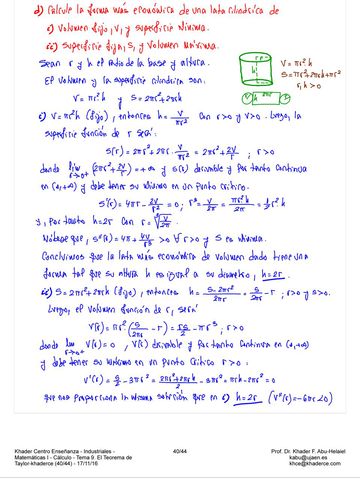 d) Calcule la forma más económica de una lata cilíndrica de
i) Volumen fijo, V, y superficie mínima.
ii) Superficie fija, S, y volumen máximo.
Sean r y h el radio de la base y altura.
El volumen y la superficie cilíndrica son:
V = πr²h y S = 2πr² + 2πrh
V = πr²h
S = πr² + 2πrh + πr²
r, h > 0
i) V = πr²h (fijo), entonces h = V/πr² con r > 0 y V > 0. Luego, la
superficie función de r será:
S(r) = 2πr² + 2πr · V/πr² = 2πr² + 2V/r ; r > 0
donde lim r→0+ (2πr² + 2V/r) = +∞ y S(r) derivable y por tanto continua
en (0,+∞) y debe tener su mínimo en un punto crítico.
S'(r) = 4πr - 2V/r² = 0 ; r³ = V/2π = πr²h/2π = ½r²h
y, por tanto h = 2r con r = ∛(V/2π)
Nótese que, S''(r) = 4π + 4V/r³ > 0 ∀ r > 0 y S es mínima.
Concluimos que la lata más económica de volumen dado tiene una
forma tal que su altura h es igual a su diámetro, h = 2r.
ii) S = 2πr² + 2πrh (fijo), entonces h = (S - 2πr²)/2πr = S/2πr - r ; r > 0 y S > 0.
Luego, el volumen función de r, será
V(r) = πr² (S/2πr - r) = rS/2 - πr³ ; r > 0
donde lim r→0+ V(r) = 0, V(r) derivable y por tanto continua en (0,+∞)
y debe tener su máximo en un punto crítico r > 0:
V'(r) = S/2 - 3πr² = (2πr² + 2πrh)/2 - 3πr² = πrh - 2πr² = 0
que nos proporciona la misma solución que en i) h = 2r (V''(r) = -6πr < 0)
Khader Centro Enseñanza - Industriales -
Matemáticas I - Cálculo - Tema 9. El Teorema de
Taylor-khaderce (40/44) - 17/11/16
40/44
Prof. Dr. Khader F. Abu-Helaiel
kabu@ujaen.es
khce@khaderce.com